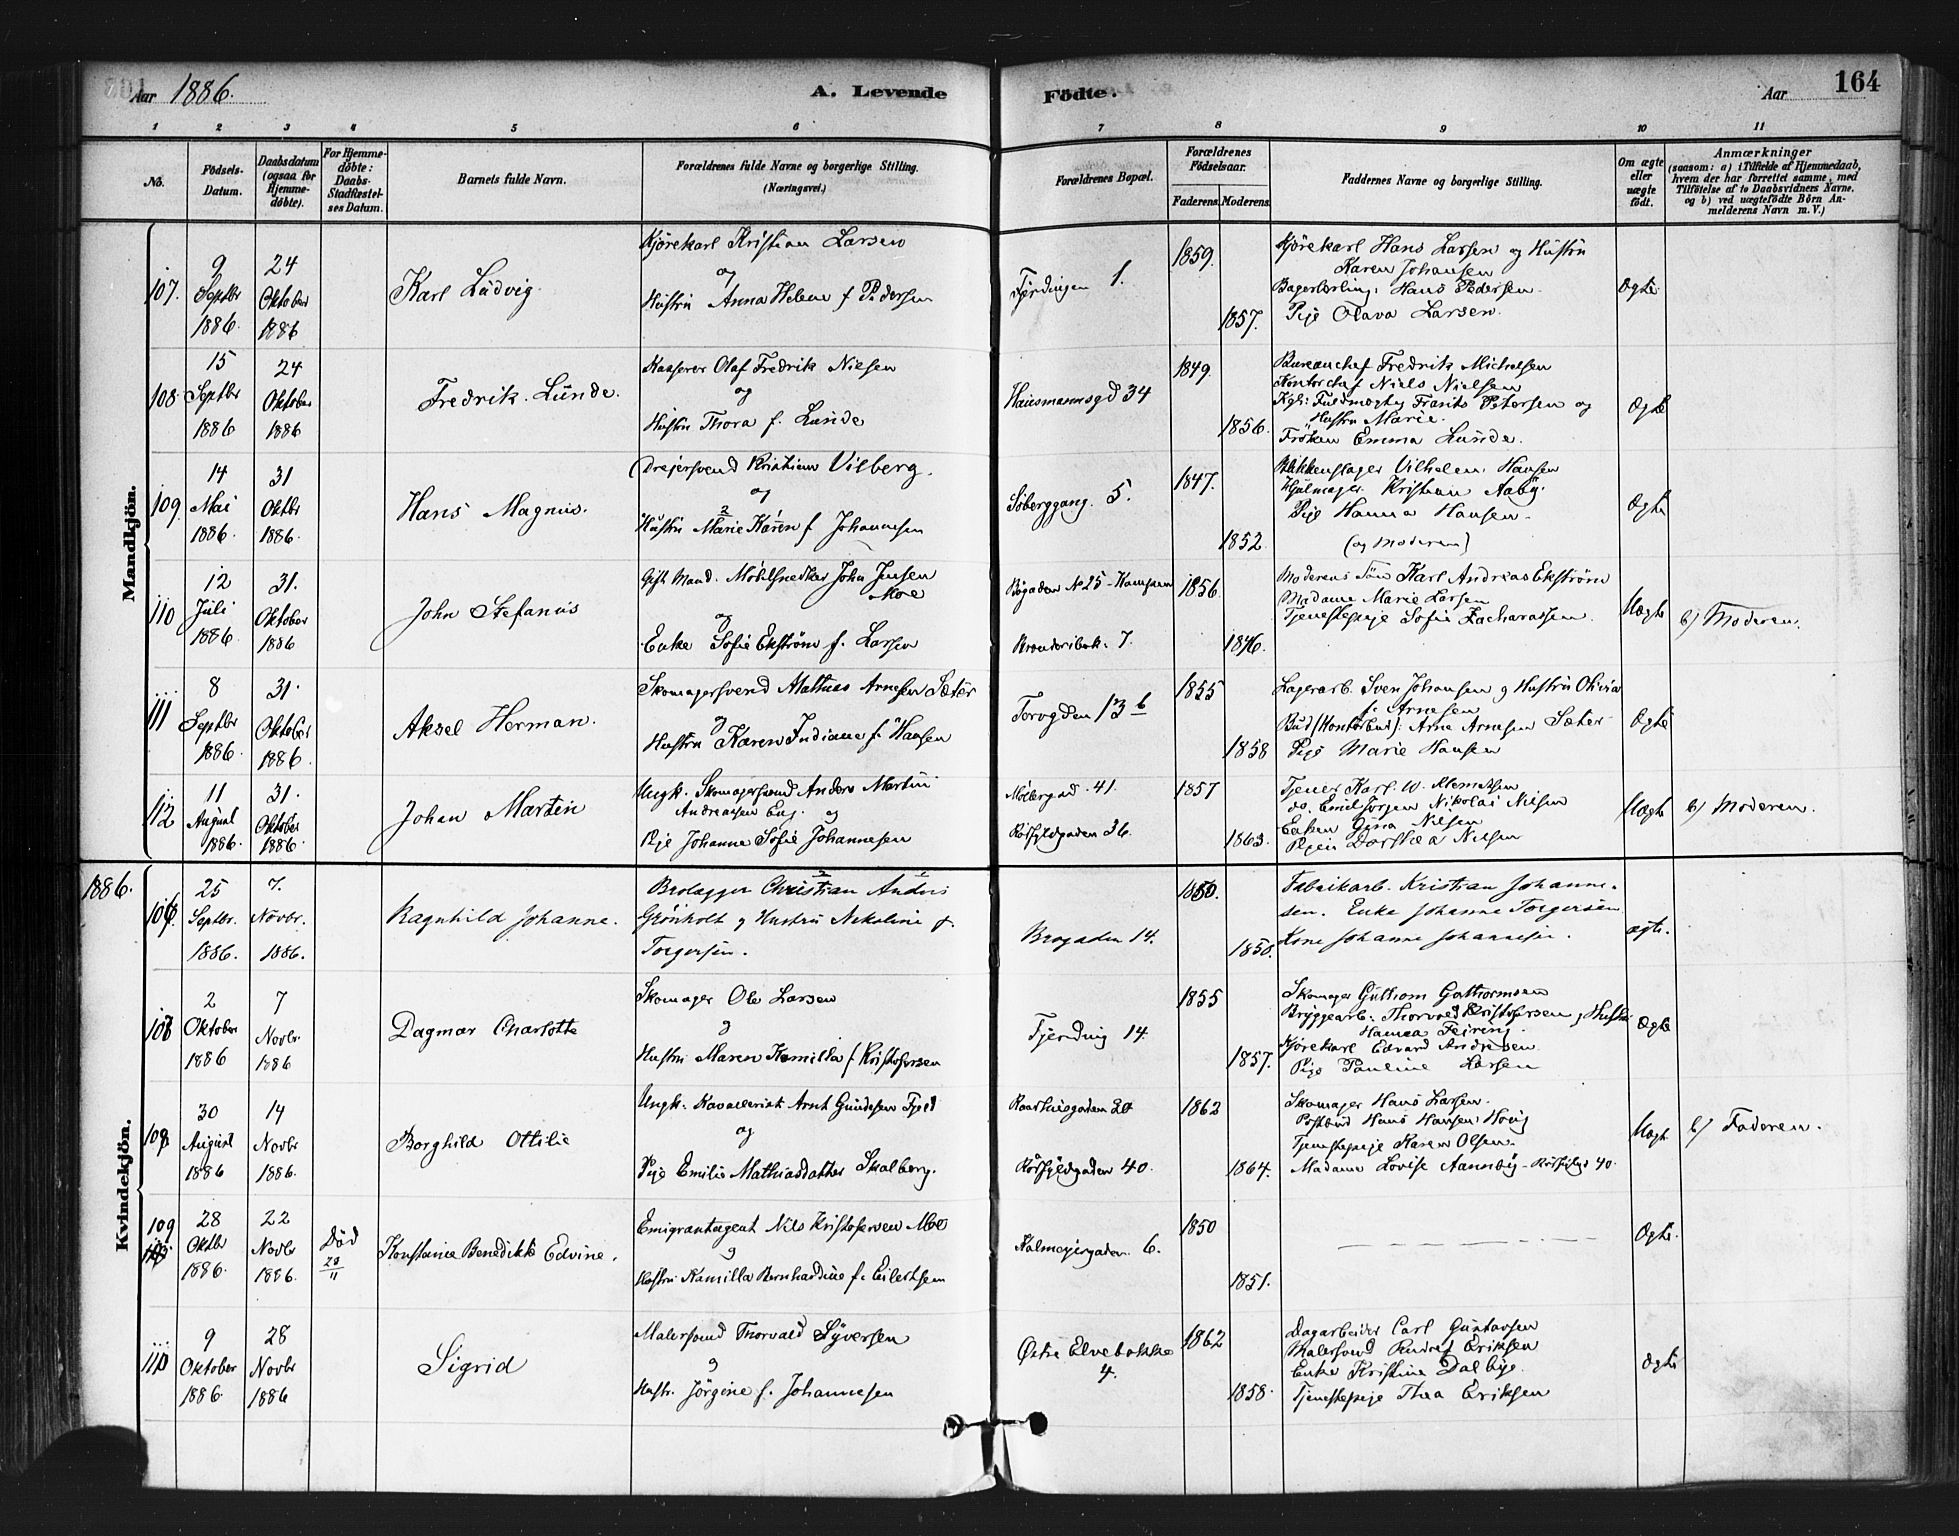 Aar 1886.
A. Levende
Födte.
Aar
164
1 2 3 4 5 6 7 8 9 10 11
No.
Födsels-
Datum.
Daabsdatum
(ogsaa for
Hjemme-
döbte).
For Hjemme-
döbte:
Daabs-
Stadfæstel-
ses Datum.
Barnets fulde Navn.
Forældrenes fulde Navne og borgerlige Stilling.
(Næringsvei.)
Forældrenes Bopæl.
Forældrenes
Födselsaar.
Faderens. Moderens.
Faddernes Navne og borgerlige Stilling.
Om ægte
eller
uægte
födt.
Anmærkninger
(saasom: a) i Tilfælde af Hjemmedaab,
hvem der har forrettet samme, med
Tilföielse af to Daabsvidners Navne,
og b) ved uægtefödte Börn An-
melderens Navn m. V.)
Mandkjön.
107.
9
Septbr
1886.
24
Oktober
1886
Karl Ludvig.
Kjörekarl Kristian Larsen
og
Hustru Anna Helene f. Pedersen
Fjerdingen 1.
1859.
1857.
Kjörekarl Hans Larsen og Hustru
Karen Johansen
Bagerlærling: Hans Pedersen
Pige Olava Larsen.
Ægte
108
15
Septbr
1886
24
Oktober
1886
Fredrik Lunde.
Kasserer Olaf Fredrik Nielsen
og
Hustru Thora f. Lunde
Hausmannsgd 34
1849.
1856.
Bureauchef Fredrik Michelsen
Kontorchef Niels Nielsen
Kgl: Fuldmægtig Frants Petersen og
Hustru Marie.
Fröken Emma Lunde.
Ægte
109
14
Mai
1886.
31
Oktbr
1886.
Hans Magnus.
Drejersvend Kristian Vilberg.
og
Hustru Marie Karen f. Johannsen
Söberggang. 5.
1847.
1852.
Blikkenslager Vilhelm Hansen
Hjulmager Kristian Aaby.
Pige Hanna Hansen.
(og Moderen)
Ægte
110
12
Juli
1886.
31.
Oktober
1886
John Stefanus
Gift Mand. Möbelsnedker John Jensen
Moe
og
Enke Sofie Ekström f. Larsen
Bögaden No 25 - Kampen
7.
1856.
1846.
Moderens Sön Karl Andreas Ekström
Madame Marie Larsen
Tjenestepige Sofie Zachariassen.
Uægte
b) Moderen.
111
8
Septbr
1886.
31.
Oktober
1886.
Aksel Herman.
Skomagersvend Mathias Arnesen Sæter
og
Hustru Karen Indiane f. Hansen
Torvgden 13 b
1855
1858
Lagerarb. Sven Johansen og Hustru Olivia
f. Arnesen
Bud (Kontorbud): Arne Arnesen Sæter
Pige Marie Hansen
Ægte
112
11
August
1886.
31.
Oktober
1886.
Johan Martin
Ungk. Skomagersvend Anders Martin
Andreassen Eng. og
Pige Johanne Sofie Johannesen
Möllergad. 41.
36.
1857
1863.
Tjener Karl W. Klemetsen
do. Emil Jörgen Nikolai Nilsen
Enken Gina Nilsen
Pigen Dorthea Nilsen
Uægte
b) Moderen.
1886.
Kvindekjön.
106
25
Septbr.
1886.
7.
Novbr.
1886.
Ragnhild Johanne.
Brolægger Christian Anders
Grönholt og Hustru Nikoline f.
Torgersen.
Brogaden 14.
1850.
1850.
Fabrikarb. Kristian Johanne-
sen. Enke Johanne Torgersen
Kone Johanne Johannesen.
ægte.
107
2
Oktober
1886
7
Novbr
1886
Dagmar Charlotte
Skomager Ole Larsen
og
Hustru Maren Kamilla f. Kristofersen
Fjerding 14.
1855
1857.
Skomager Guthorm Guthormsen
Bryggearb. Thorvald Kristofersen og Hustru
Hanna Feiring.
Kjörekarl Edvard Andresen
Pige Pauline Larsen
Ægte
108
30
August
1886
14
Novbr
1886.
Borghild Ottilie
Ungk. Kavallerist Arnt Gundesen Fjeld
og
Pige Emilie Mathiasdatter Skalberg.
Raadhusgaden 20
40.
1862
1864.
Skomager Hans Larsen.
Postbud Hans Hansen Hovig
Tjenestepige Karen Olsen.
Madam Lovise Aannby - 40.
Uægte
b) Faderen.
109
28
Oktbr
1886.
22
Novbr
1886.
Död
20/11
Konstance Benedikte Edvine.
Emigrantagent Nils Kristofersen Moe
og
Hustru Kamilla Bernhardine f. Eilertsen
Kalmeiergaden 6.
1850
1851.
Ægte
110
9
Oktober
1886.
28
Novbr
1886
Sigrid
Malersvend Thorvald Syversen
og
Hustr. Jörgine f. Johannesen
Östre Elvebakke
4.
1862
1858.
Dagarbeider Carl Gustavsen
Malersvend Eriksen
Enke Kristine Dalbye.
Tjenestepige Thea Eriksen
Ægte